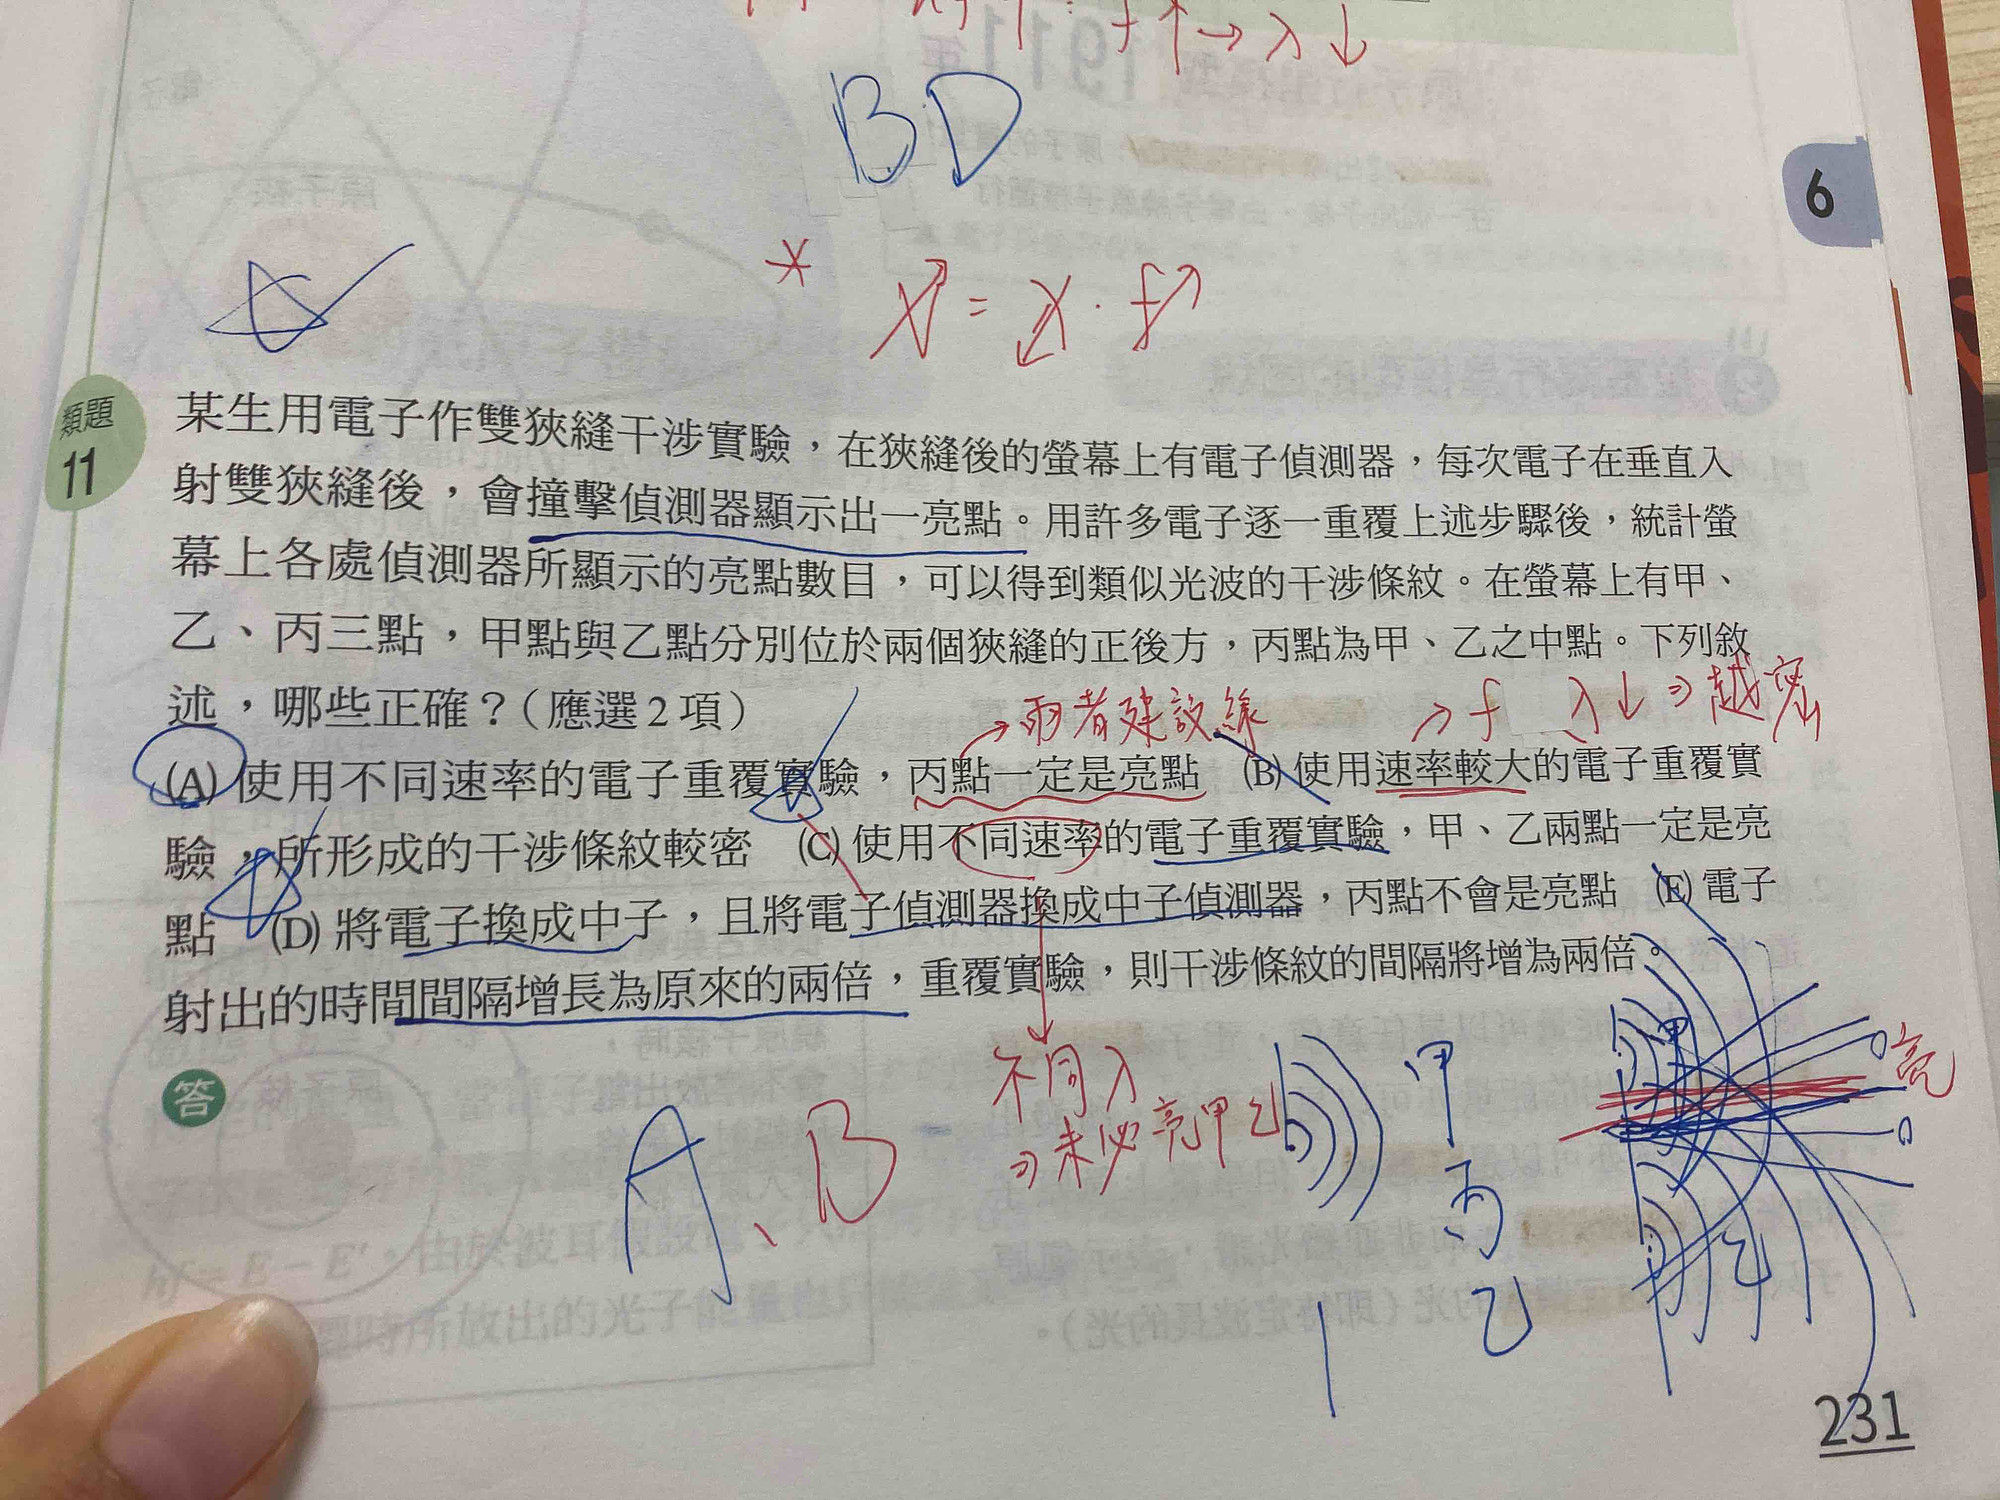 f↑→λ↓
BD
6
* V = λ · f
類題
11
某生用電子作雙狹縫干涉實驗，在狹縫後的螢幕上有電子偵測器，每次電子在垂直入
射雙狹縫後，會撞擊偵測器顯示出一亮點。用許多電子逐一重覆上述步驟後，統計螢
幕上各處偵測器所顯示的亮點數目，可以得到類似光波的干涉條紋。在螢幕上有甲、
乙、丙三點，甲點與乙點分別位於兩個狹縫的正後方，丙點為甲、乙之中點。下列敘
述，哪些正確？（應選2項）
→兩者建設線
→f λ↓⇒越密
(A) 使用不同速率的電子重覆實驗，丙點一定是亮點 (B) 使用速率較大的電子重覆實
驗，所形成的干涉條紋較密 (C) 使用不同速率的電子重覆實驗，甲、乙兩點一定是亮
點 (D) 將電子換成中子，且將電子偵測器換成中子偵測器，丙點不會是亮點 (E) 電子
射出的時間間隔增長為原來的兩倍，重覆實驗，則干涉條紋的間隔將增為兩倍。
答
A、B
不同λ
⇒未必亮甲乙
甲
丙
乙
甲
亮
乙
231